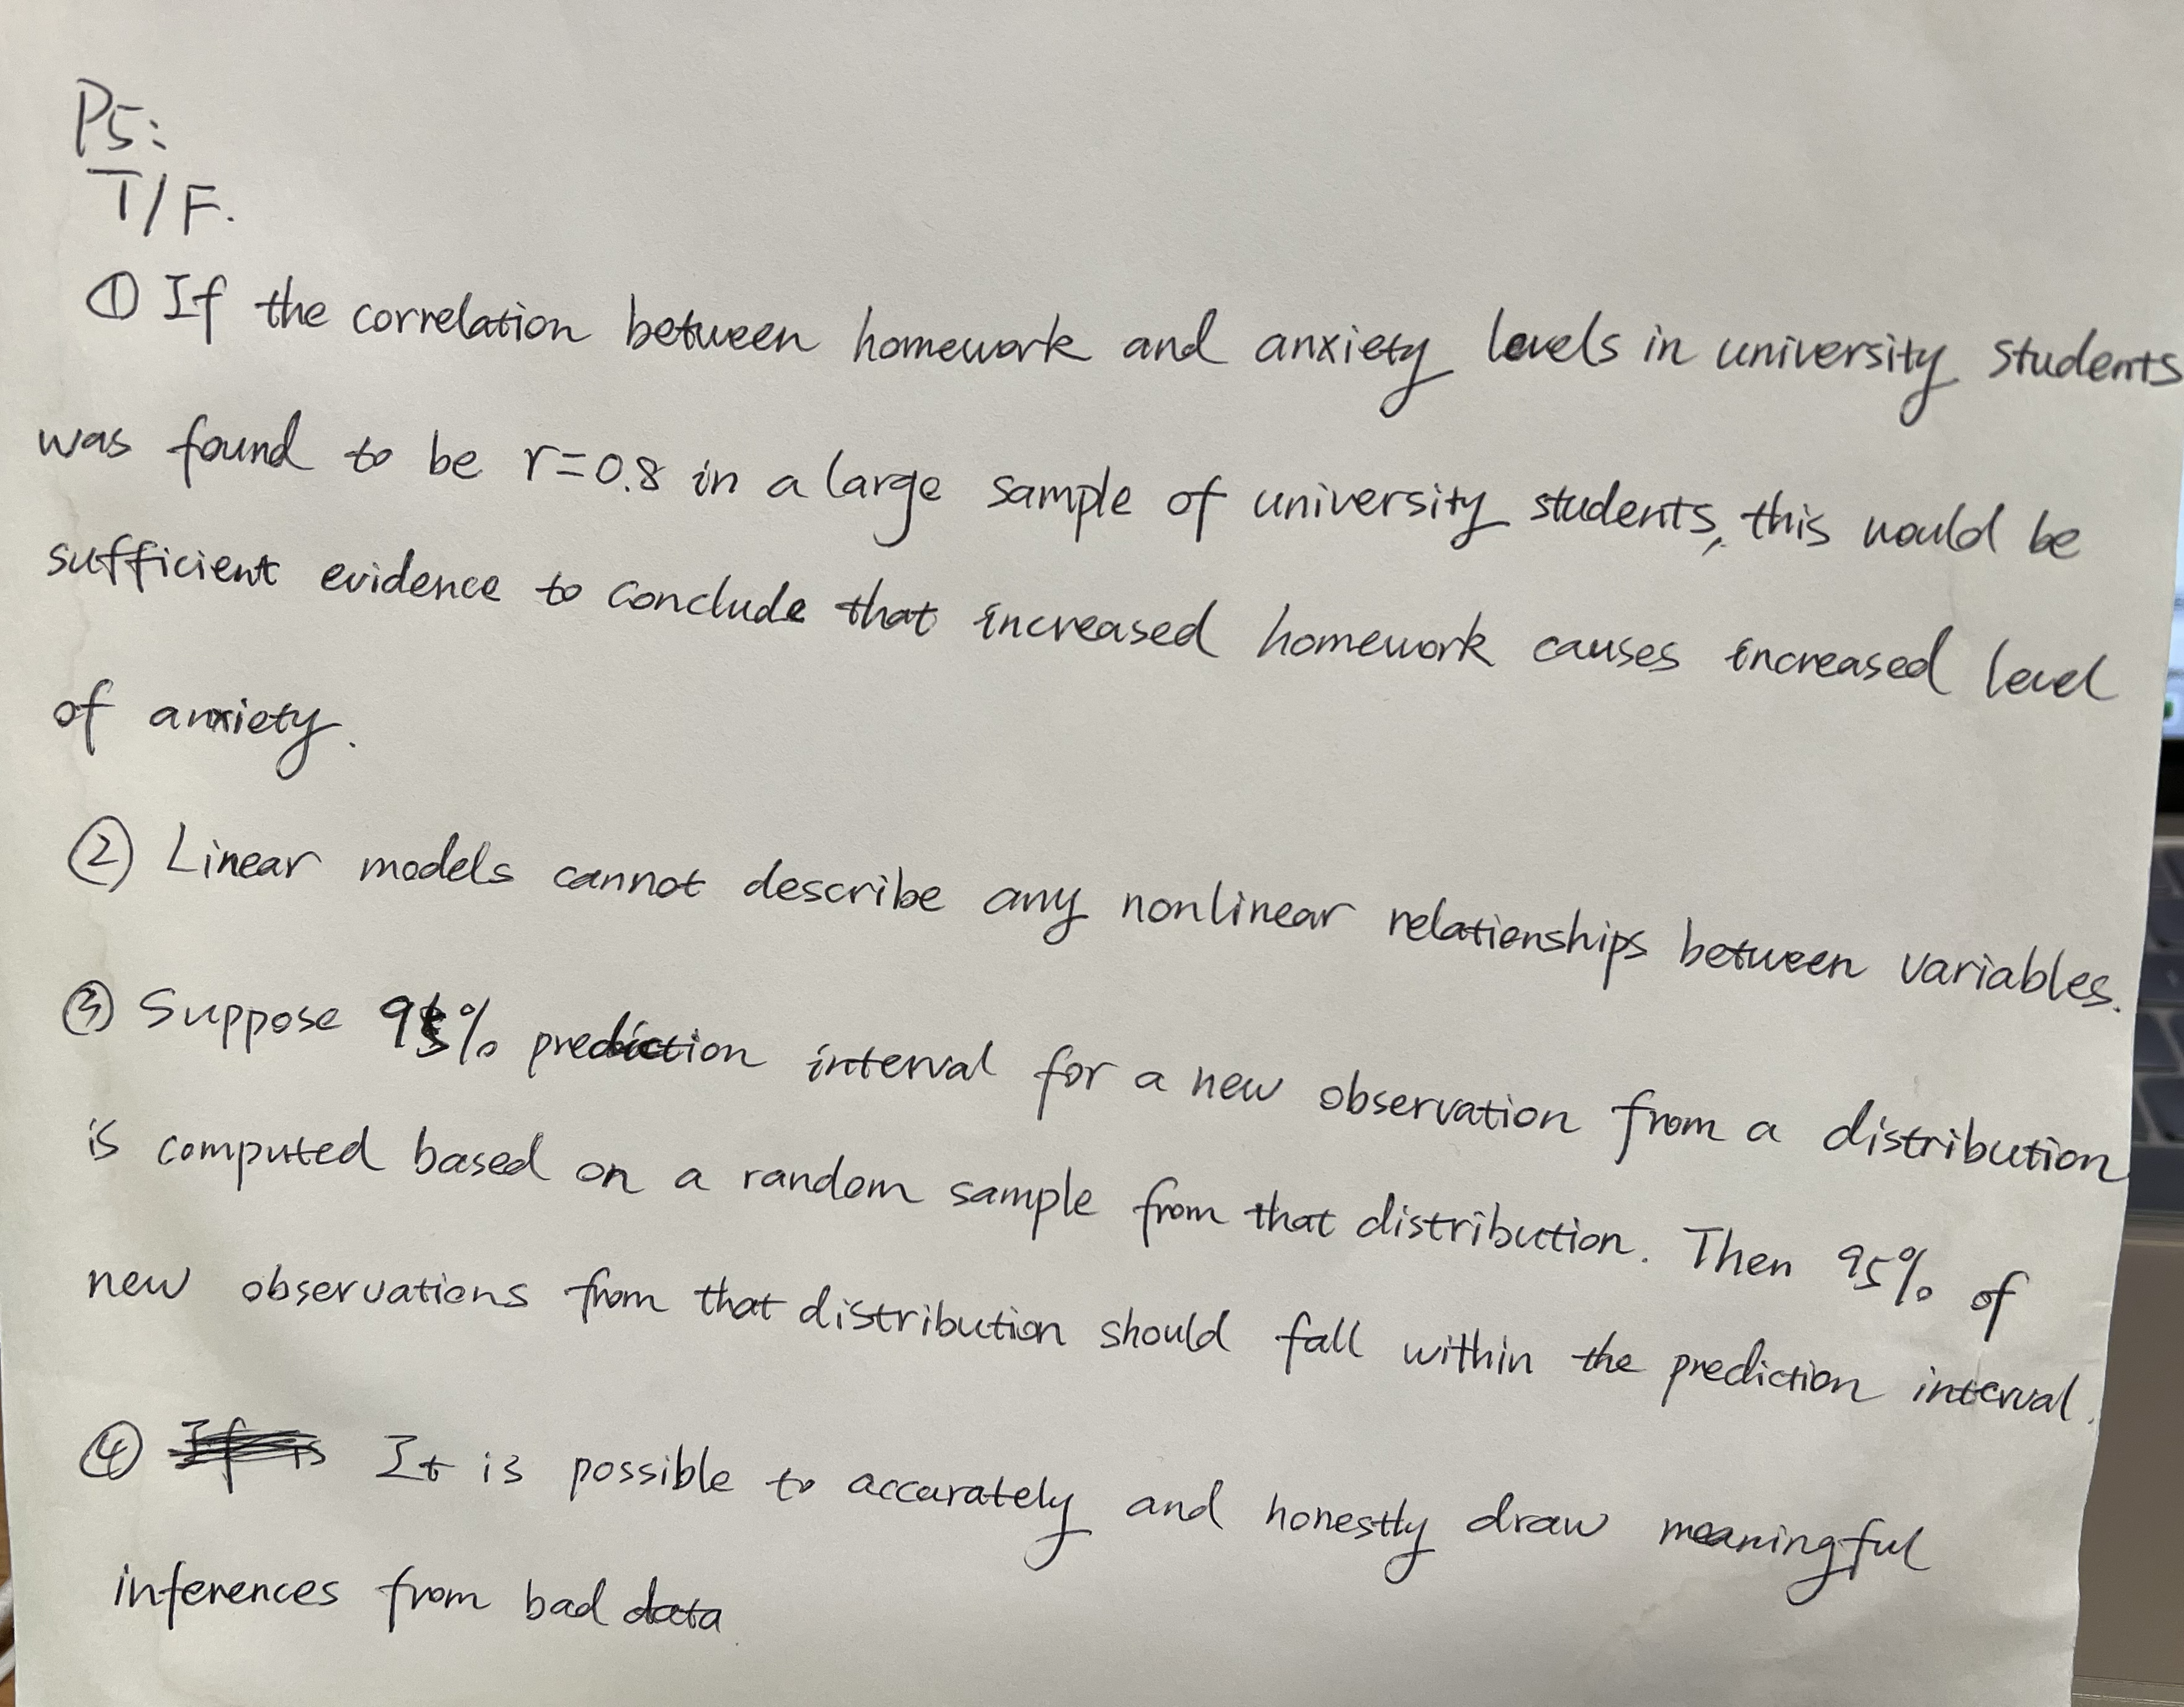 P5:
T/F.
① If the correlation between homework and anxiety levels in university students
was found to be r=0.8 in a large sample of university students, this would be
sufficient evidence to conclude that increased homework causes increased level
of anxiety.
② Linear models cannot describe any nonlinear relationships between variables.
③ Suppose 95% prediction interval for a new observation from a distribution
is computed based on a random sample from that distribution. Then 95% of
new observations from that distribution should fall within the prediction interval.
④ It is possible to accurately and honestly draw meaningful
inferences from bad data